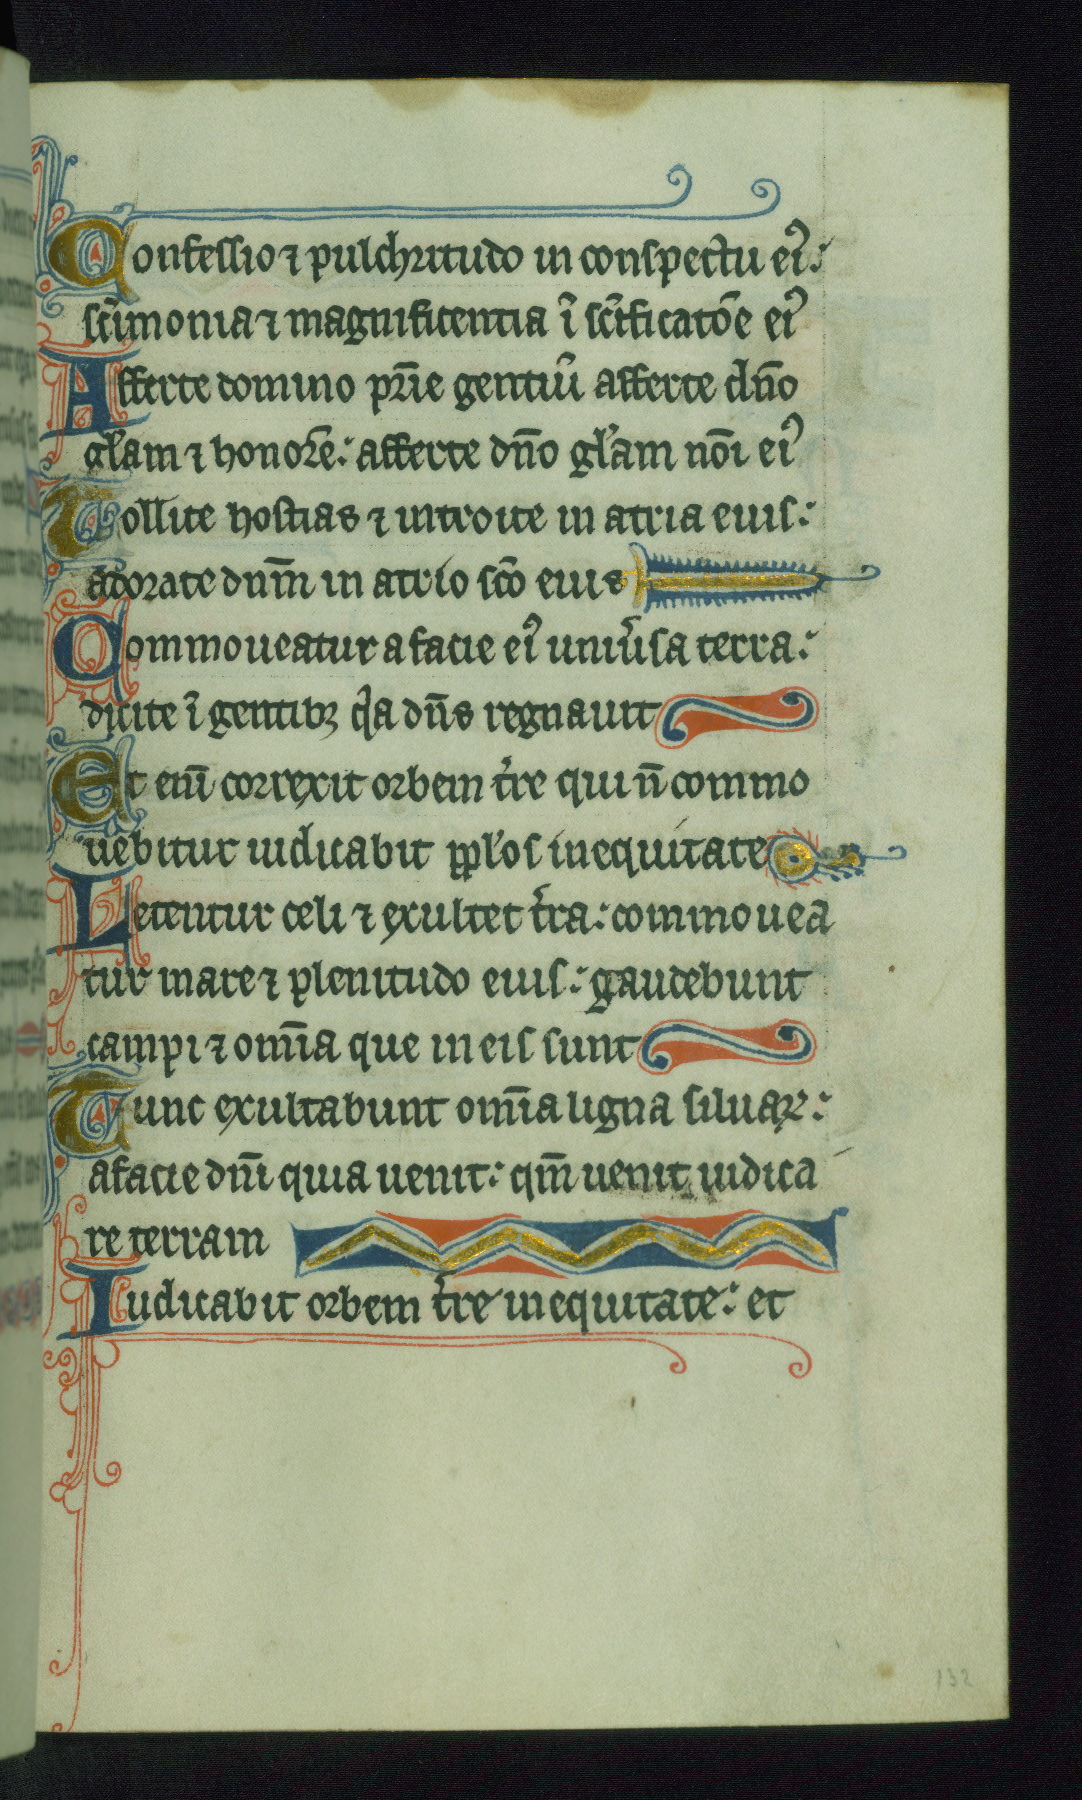 Confessio ⁊ pulchritudo in conspectu ei᾽:
sc̄imonia ⁊ magnificentia ī sc̄ificatōe ei᾽
Afferte domino pr̄ie gentiū afferte dn̄o
gl̄am ⁊ honorē: afferte dn̄o gl̄am nōi ei᾽
Tollite hostias ⁊ introite in atria euis:
adorate dnm̄ in atrio sc̄o euis
Commoueatur a facie ei᾽ uniu̾sa terra:
dicite ī gentibꝫ qͥa dn̄s regnauit
Et enī correxit orbem t̾re qui n̄ commo
uebitur iudicabit pp̱l̾os in equitate
Letentur celi ⁊ exultet t̾ra: commouea
tur mare ⁊ plenitudo euis: gaudebunt
campi ⁊ om̄ia que in eis sunt
Tunc exultabunt om̄ia ligna siluaꝝ:
a facie dnī quia uenit: qm̄ uenit iudica
re terram
Iudicabit orbem t̾re in equitate: et
132